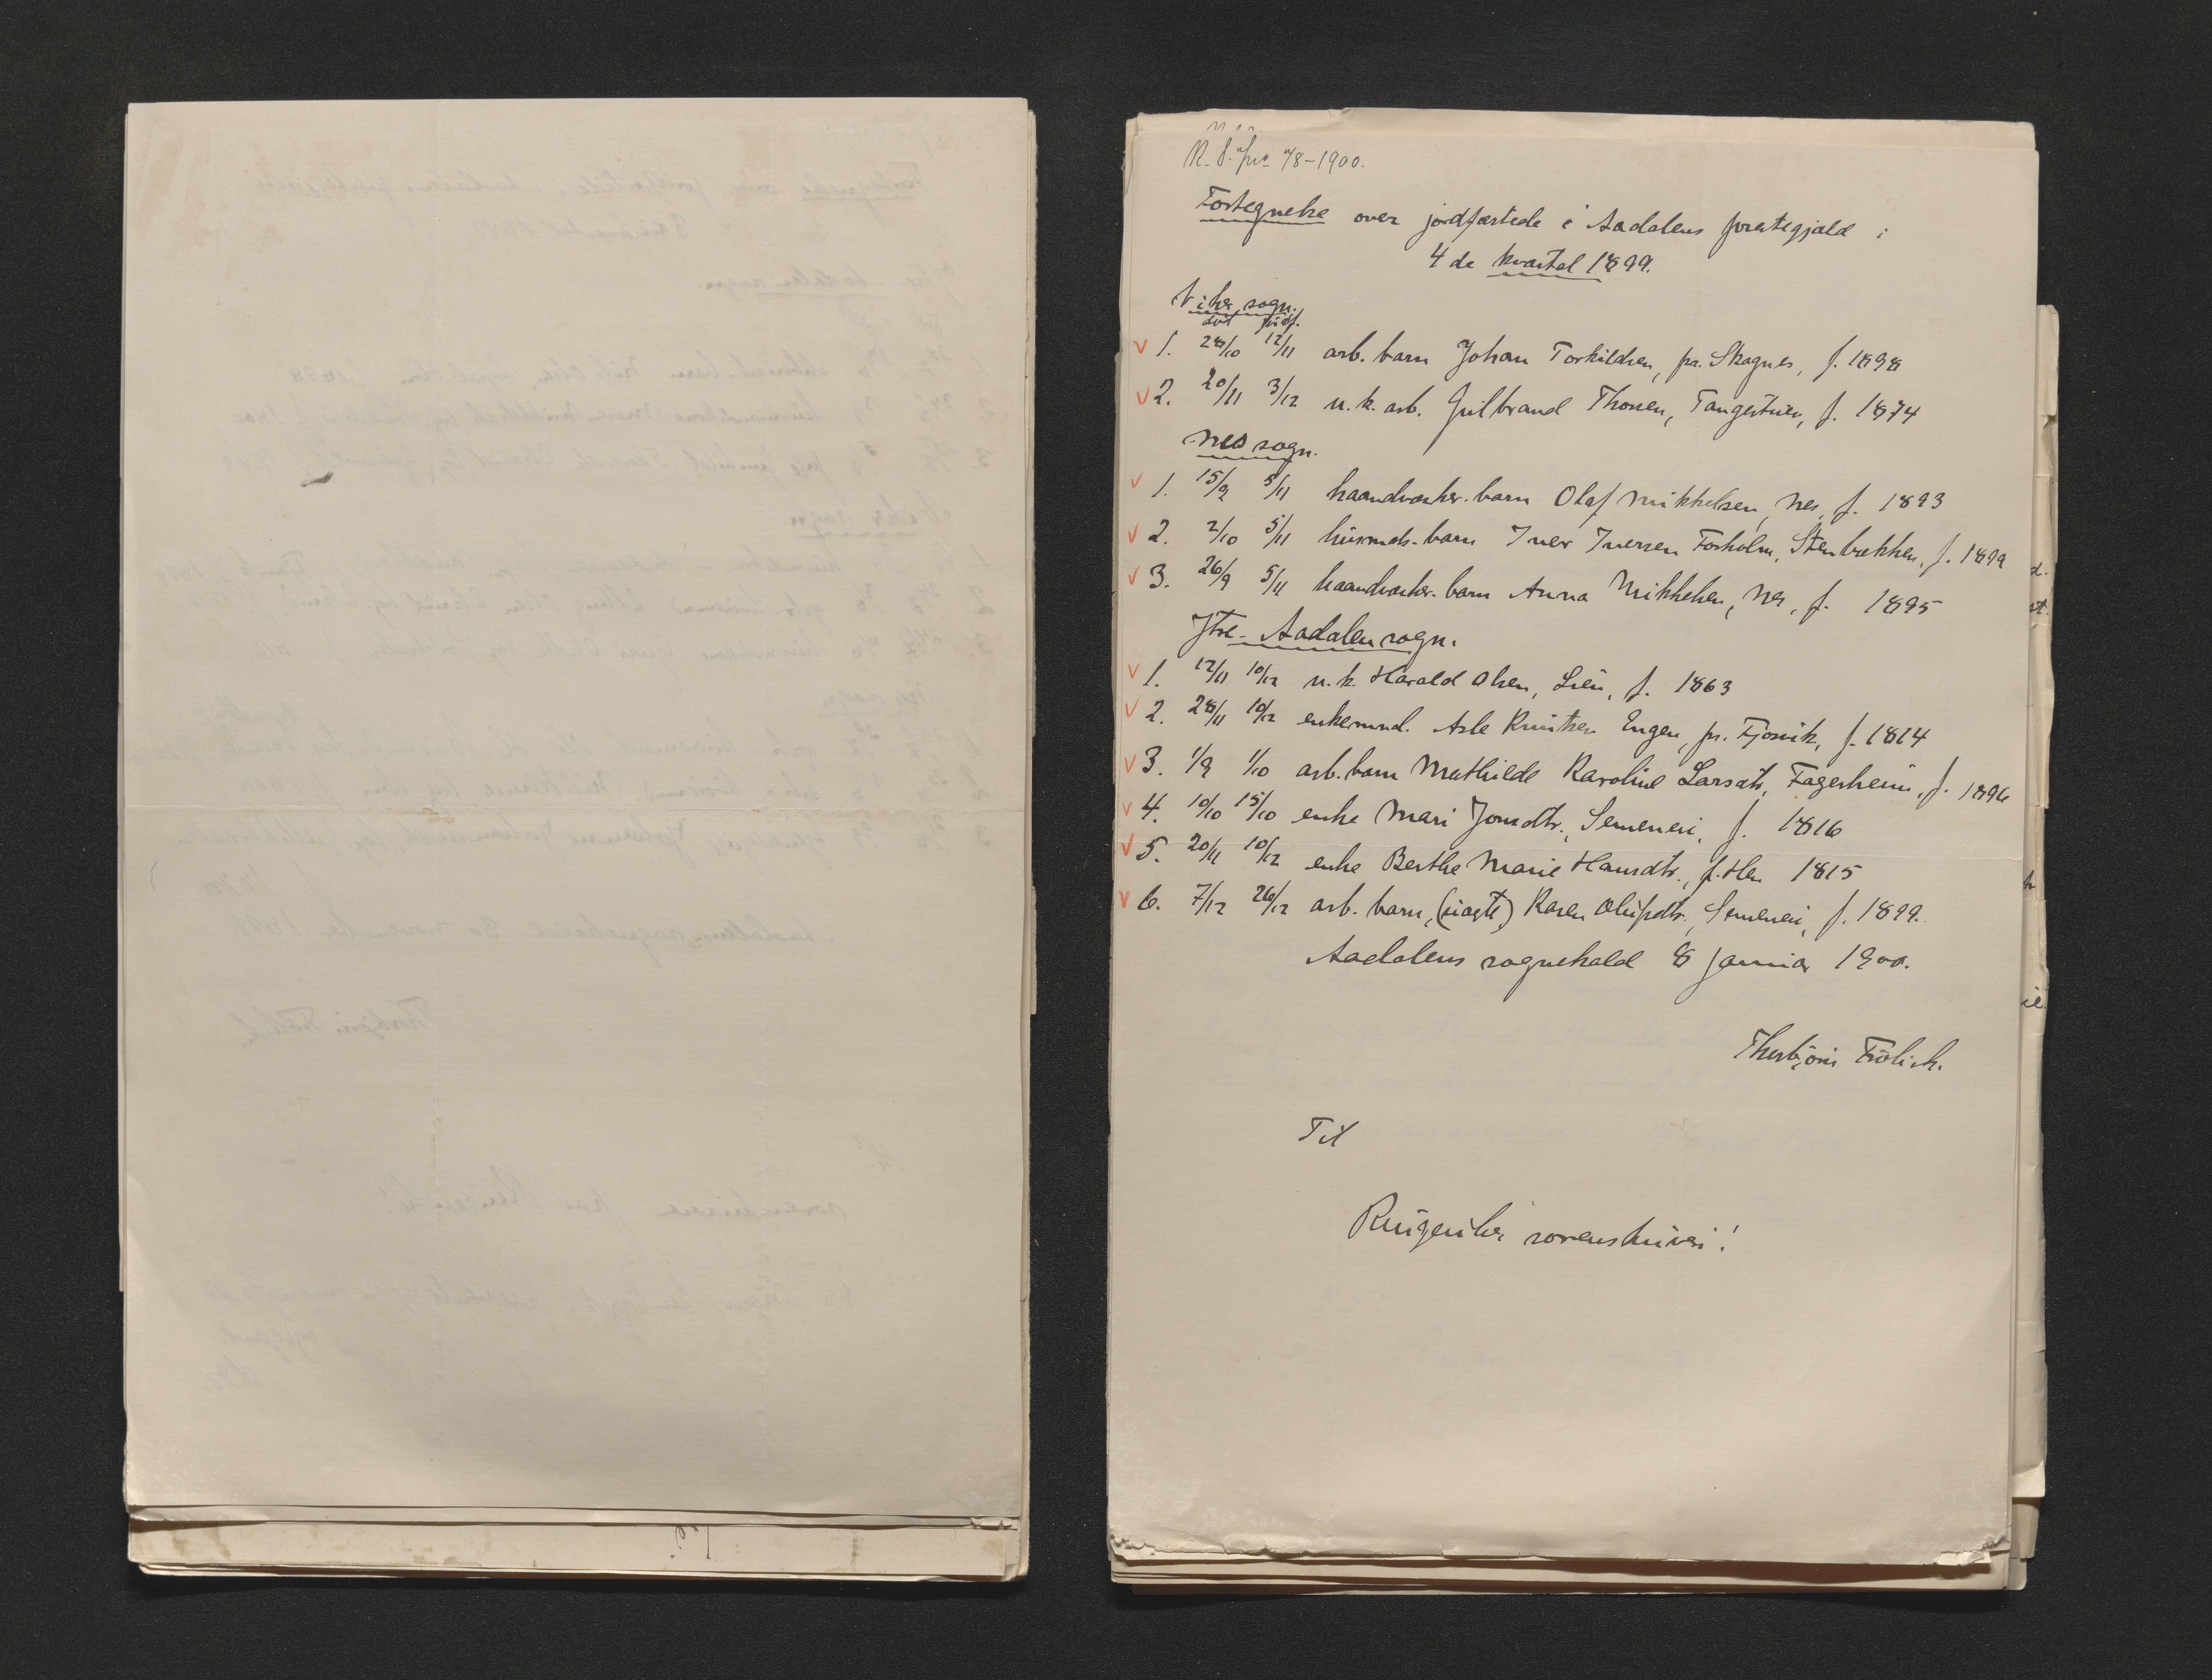 Fortegnelse over jordfæstede i Aadalens prestegjæld i
4 de kvartal 1899.
Viker sogn.
død jordf.
1. 28/10 12/11 arb. barn Johan Torkildsen, pr. Skagnes, f. 1898
2. 20/11 3/12 u.k. arb. Gulbrand Thoresen, f. 1874
Nes sogn.
1. 15/9 5/11 haandverker-barn Olaf Mikkelsen, Nes, f. 1893
2. 2/10 5/11 husmds-barn Iver Iversen Forholm, Stenbækken, f. 1899
3. 26/9 5/11 haandverker-barn Anna Mikkelsen, Nes, f. 1895
Ytre-Aadalen sogn.
1. 12/11 10/12 u.k. Harald Olsen, Lien, f. 1863
2. 28/11 10/12 enkemnd. Asle Knutsen Engen, pr. Fjosvik, f. 1814
3. 1/9 1/10 arb. barn Mathilde Karoline Larsdtr, Fagerheim, f. 1896
4. 10/10 15/10 enke Mari Jonsdtr., Semeneie, f. 1816
5. 20/11 10/12 enke Berthe Marie Hansdtr., f. Hen 1815
6. 7/12 26/12 arb. barn, (uægte) Karen Olufsdtr., Semeneie, f. 1899.
Aadalens sognekald 8 januar 1900.
Thorbjørn Frölich.
Til
Ringerikes sorenskriveri!